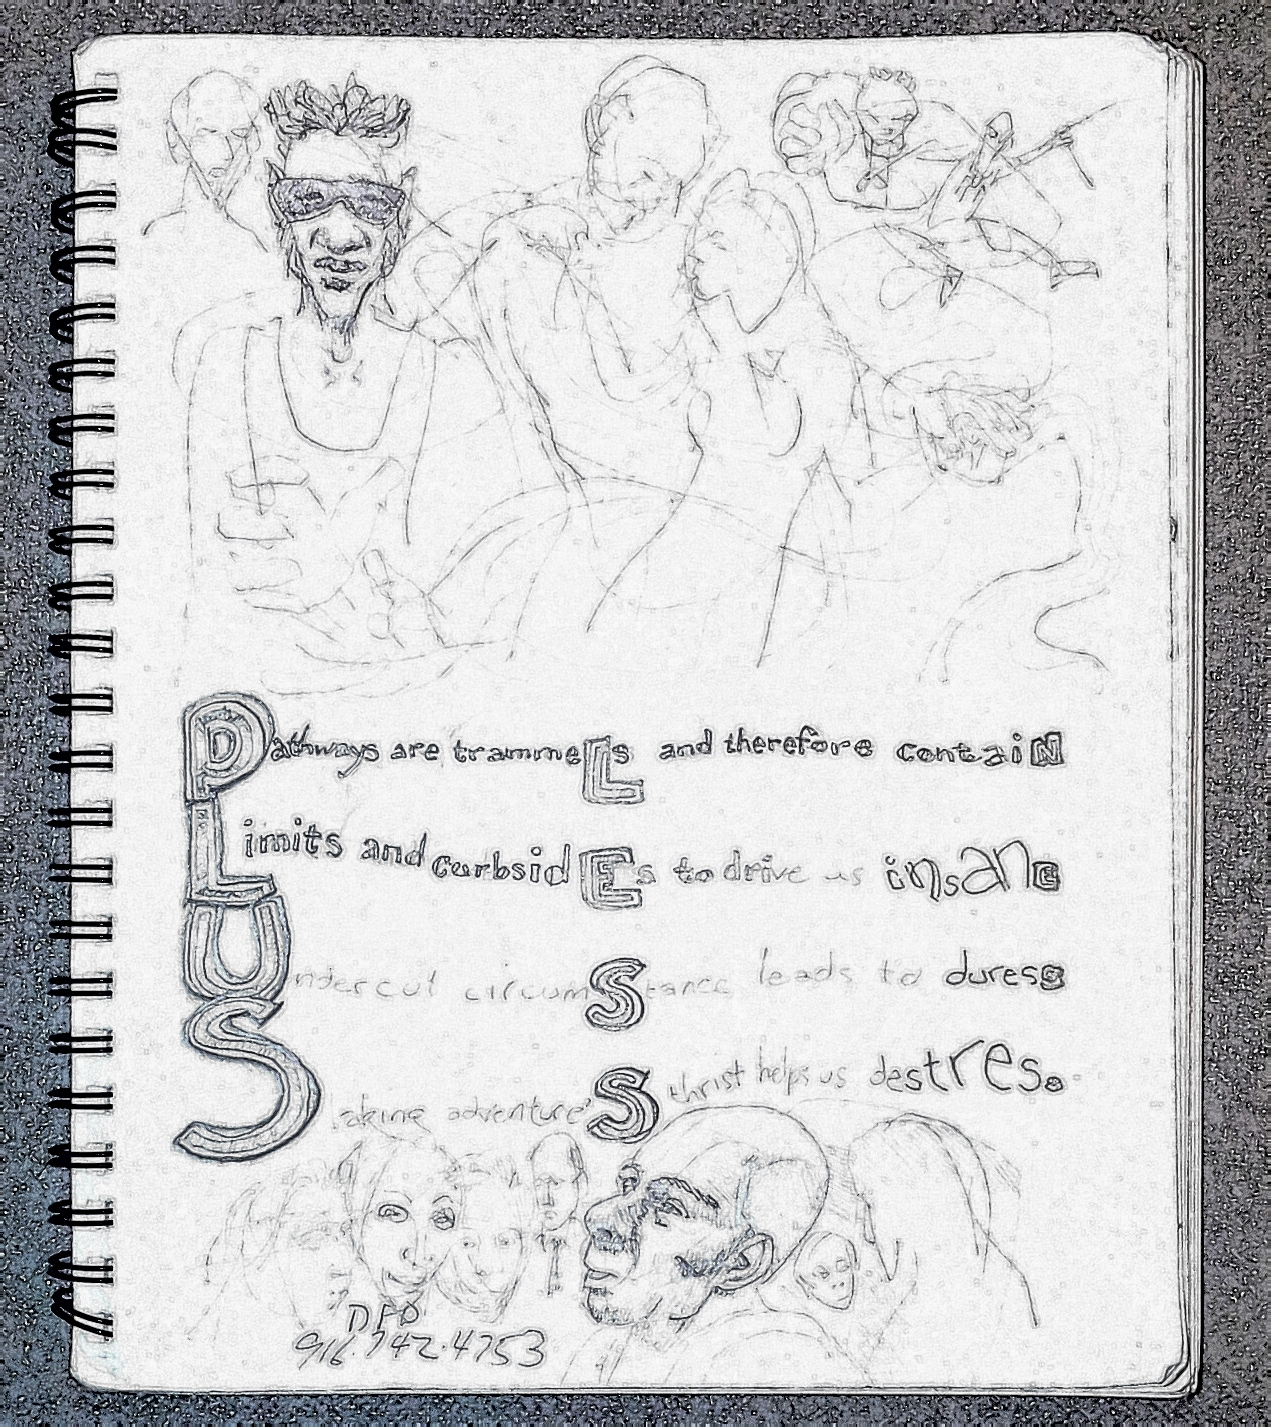 Pathways are trammeLs and therefore contaiN
Limits and curbsidEs to drive us insanE
Undercut circumStance leads to duress
Saking adventure'S christ helps us destress
DFD
916.742.4753